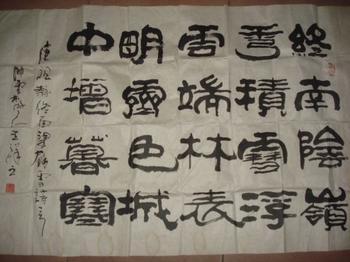 終南陰嶺
秀積雪浮
雲端林表
明霽色城
中增暮寒
唐祖詠終南望餘雪詩